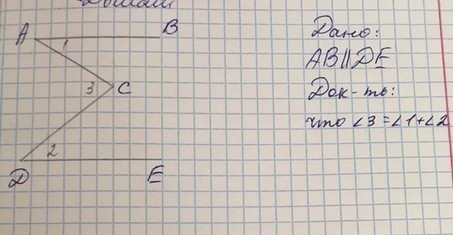 A
B
1
3
C
2
D
E
Дано:
AB || DE
Док-ть:
что ∠3 = ∠1 + ∠2